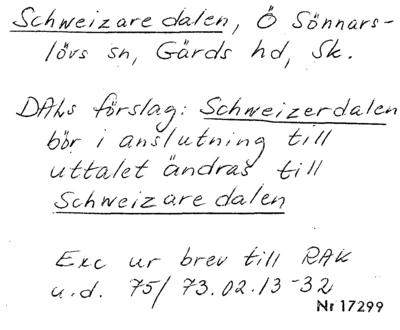 Schweizaredalen, Ö Sönnars-
lövs sn, Gärds hd, Sk.
DALs förslag: Schweizerdalen
bör i anslutning till
uttalet ändras till
Schweizaredalen
Exc ur brev till RAK
u.d. 75/73.02.13-32
Nr 17299